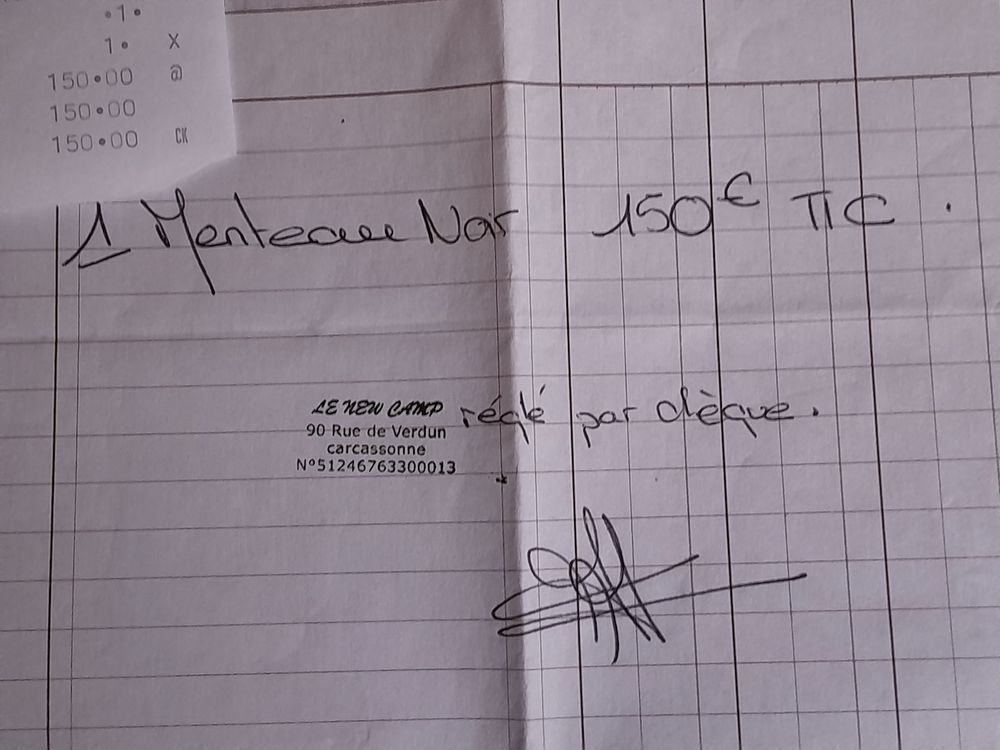 •1•
1• X
150•00 @
150•00
150•00 CK
1 Menteau Noir 150€ TTC.
réglé par chèque.
LE NEW CAMP
90 Rue de Verdun
carcassonne
N°51246763300013